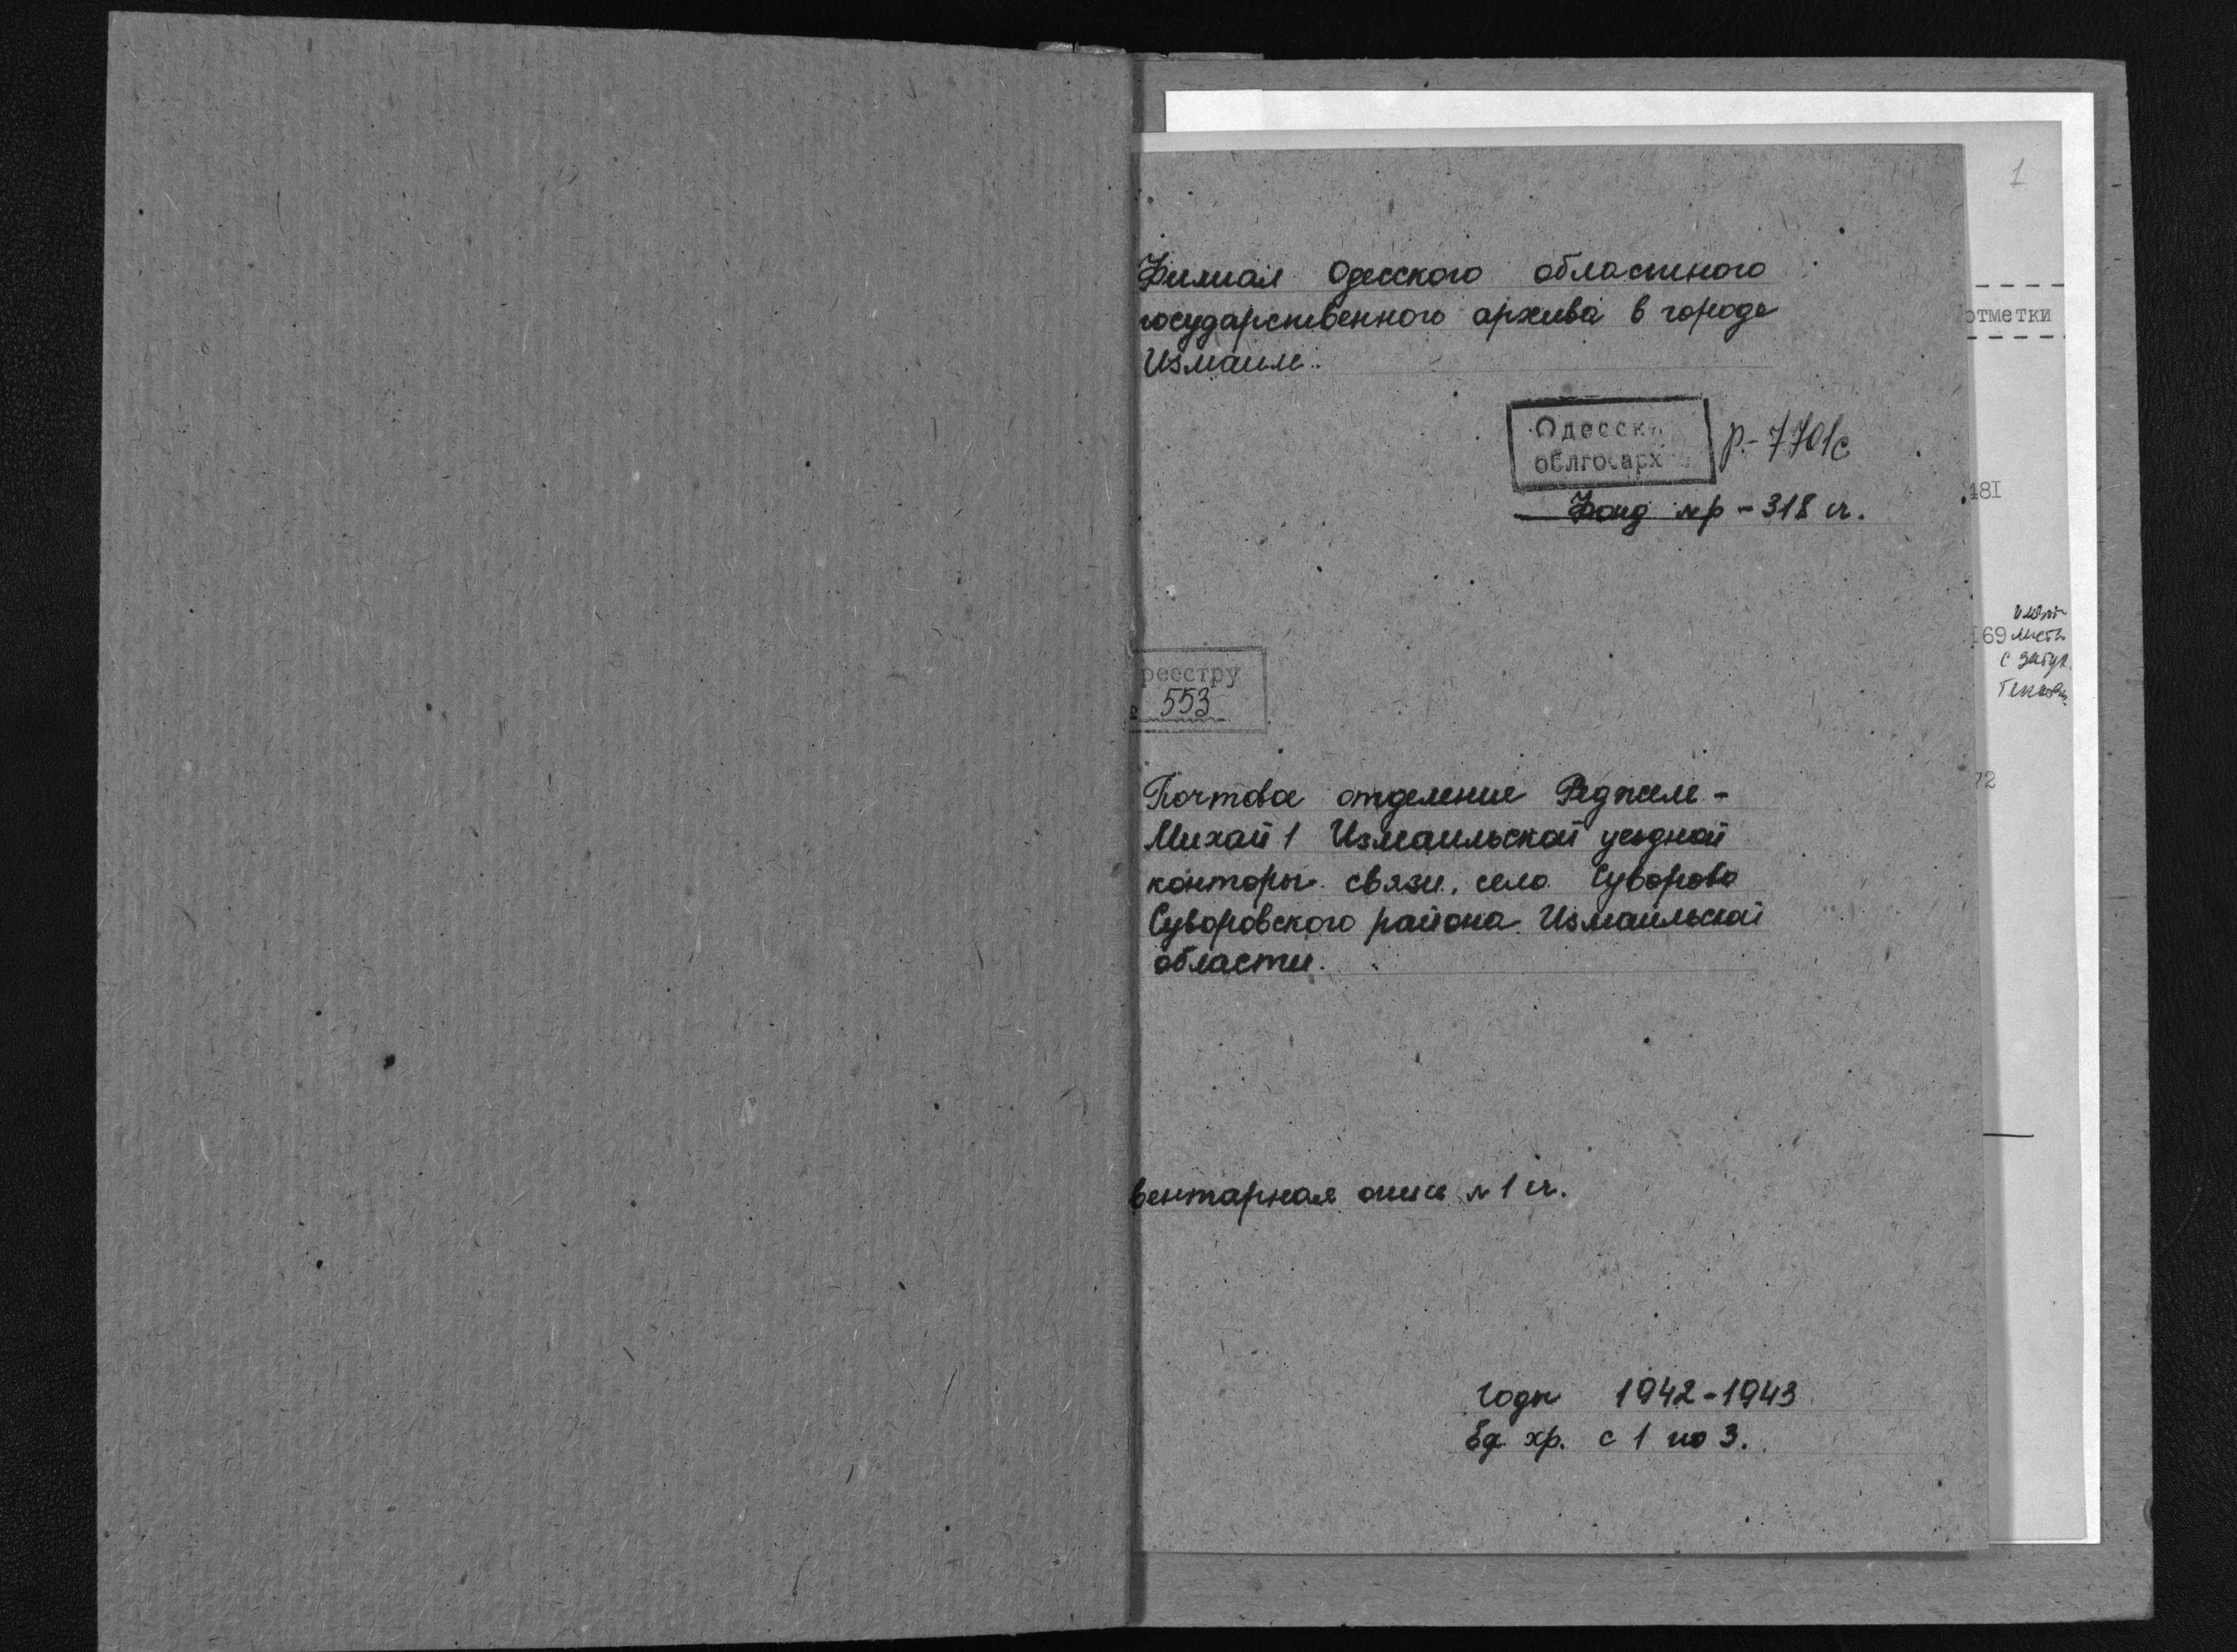 1
Филиал Одесского областного
государственного архива в городе
Измаиле.
отметки
Одесск
облгосарх
Р-7701с
Фонд №р-318 сч.
181
169
листы
с затух.
текстом
реестру
553
72
Почтовое отделение Реджеле-
Михай 1 Измаильской уездной
конторы связи, село Суворово
Суворовского района Измаильской
области.
вентарная опись №1 сч.
Годы 1942-1943
Ед хр. с 1 по 3.